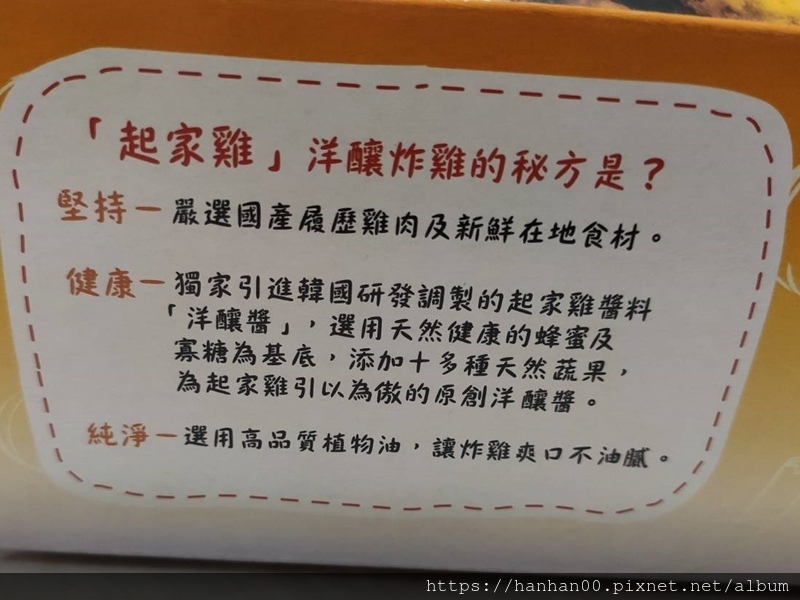 「起家雞」洋釀炸雞的秘方是？
堅持－嚴選國產履歷雞肉及新鮮在地食材。
健康－獨家引進韓國研發調製的起家雞醬料
「洋釀醬」，選用天然健康的蜂蜜及
寡糖為基底，添加十多種天然蔬果，
為起家雞引以為傲的原創洋釀醬。
純淨－選用高品質植物油，讓炸雞爽口不油膩。
https://hanhan00.pixnet.net/album